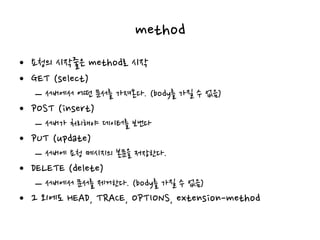 method
• 요청의 시작줄은 method로 시작
• GET (select)
– 서버에서 어떤 문서를 가져온다. (body를 가질 수 없음)
• POST (insert)
– 서버가 처리해야 데이터를 보낸다
• PUT (update)
– 서버에 요청 메시지의 본문을 저장한다.
• DELETE (delete)
– 서버에서 문서를 제거한다. (body를 가질 수 없음)
• 그 외에도 HEAD, TRACE, OPTIONS, extension-method